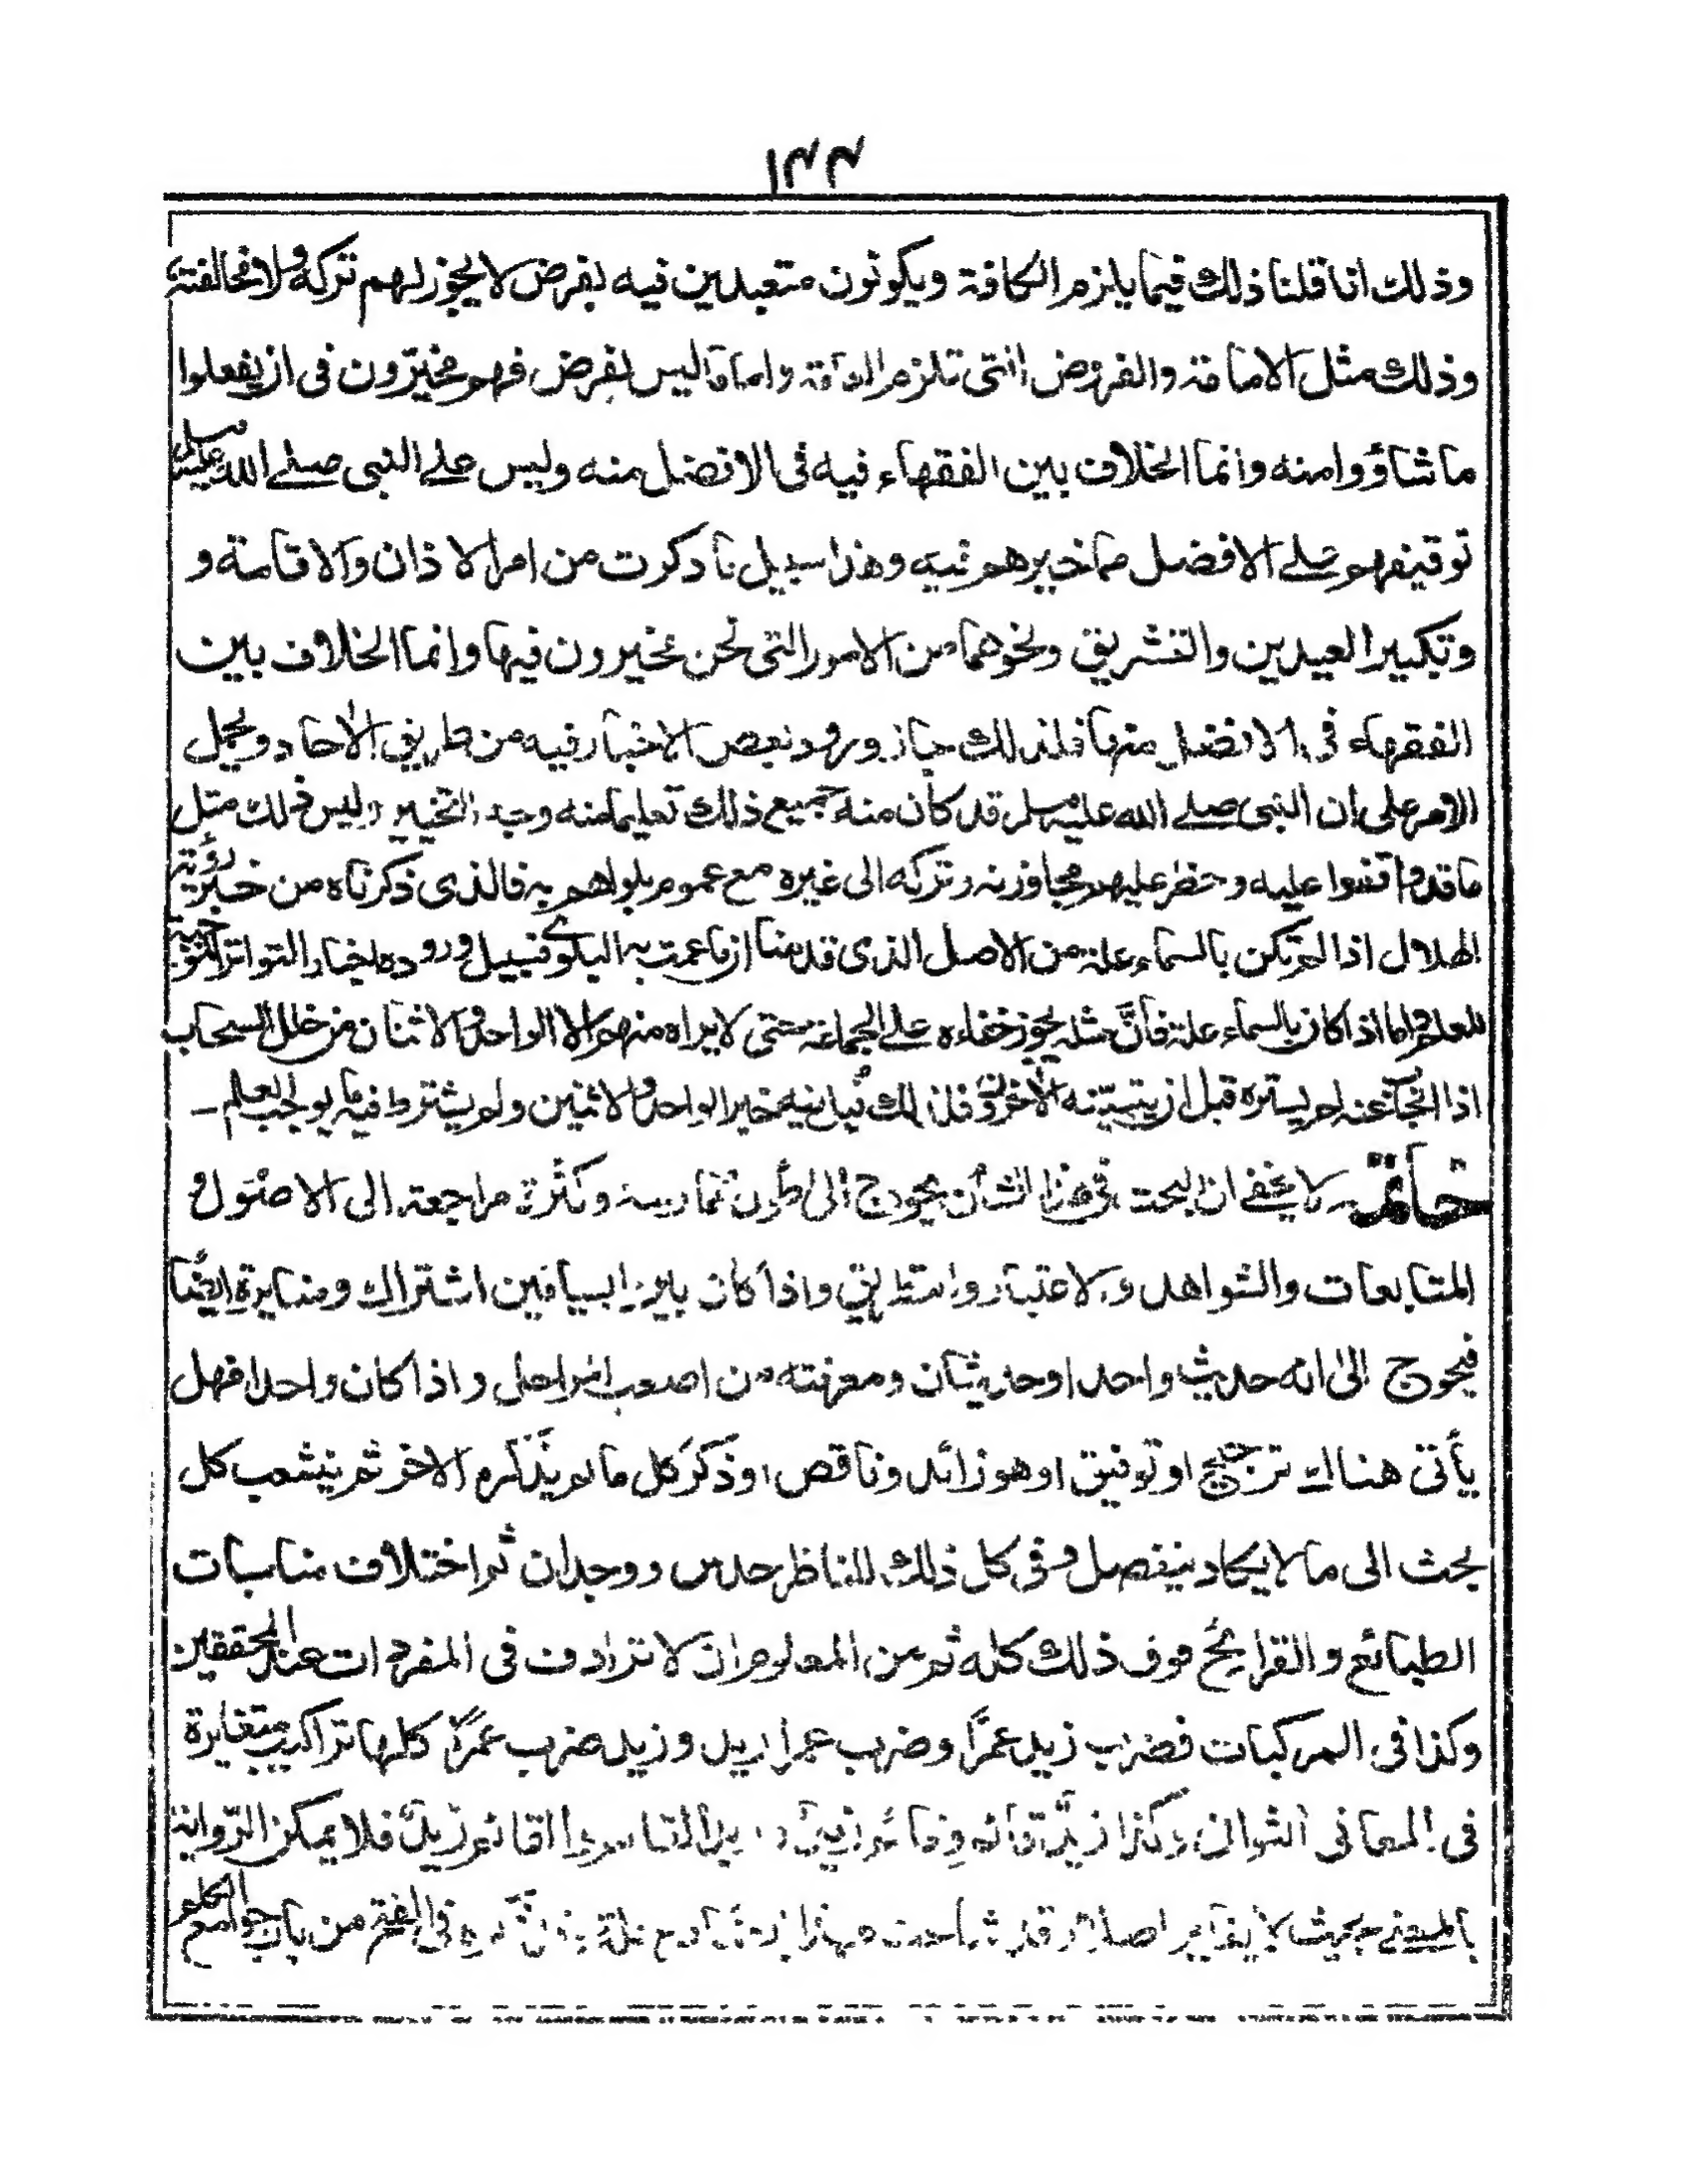 ١٣٣
وذلك انا قلنا ذلك فيما يلزم الكافة ويكونون متعبدين فيه بفرض لا يجوز لهم تركه ولا مخالفته
وذلك مثل الامامة والفروض التى تلزم العامة واما ما ليس بفرض فهم مخيرون فى ان يفعلوا
ما شاؤوا منه وانما الخلاف بين الفقهاء فيه فى الافضل منه وليس على النبى صلے الله عليه وسلم
توقيفهم علے الافضل مما خيرهم فيه وهذا سبيل ما ذكرت من امر الاذان والاقامة و
وتكبير العيدين والتشريق ونحوهما من الامور التى نحن مخيرون فيها وانما الخلاف بين
الفقهاء فى الافضل منها فلذلك جاز ورود بعض الاخبار فيه من طريق الآحاد ويحمل
الامر على ان النبى صلے الله عليه وسلم قد كان منه جميع ذلك تعليما منه وجه التخيير وليس ذلك مثل
ما قد وقفوا عليه وحظر عليهم مجاوزته وتركه الى غيره مع عموم بلواهم به فالذى ذكرناه من خبر رؤية
الهلال اذا لم تكن بالسماء علة من الاصل الذى قدمنا ان ما عمت به البلوے فسبيل وروده اخبار التواتر الموجبة
للعلم واما اذا كان بالسماء علة فانّ مثله يجوز خفاءه على الجماعة حتى لا يراه منهم الا الواحد والاثنان من خلل السحاب
اذا انجاب عنه لم يستره قبل ان يتبينه الآخرون فلذلك قبل فيه خبر الواحد والاثنين ولم يشترط فيه ما يوجب العلم ـ
خاتمة ـ لا يخفے ان البحث فى هذا الشأن يحوج الى طول ممارسة وكثرة مراجعة الى الاصول و
المتابعات والشواهد والاعتبار واذا كان بين السياقين اشتراك ومغايرة ايضا
فيحوج الىٰ انه حديث واحد او حديثان ومعرفته من اصعب المراحل واذا كان واحدا فهل
يأتى هناك ترجيح او توفيق او هو زائد وناقص او ذكر كل ما لم يذكره الآخر ثم ينشعب كل
بحث الى ما لا يكاد ينفصل وفى كل ذلك للناظر حدس ووجدان ثم اختلاف مناسبات
الطبائع والقرايح فوق ذلك كله ثم من المعلوم ان لا ترادف فى المفردات عند المحققين
وكذا فى المركبات فضرب زيد عمرًا وضرب عمرا زيد وزيد ضرب عمرًا كلها تراكيب متغايرة
فى المعانى الثوانى وكذا زيدٌ قائم وقائم زيد فلا يمكن الرواية
بالمعنے بحيث لا يتغاير اصلا وقد فى الفتح من باب جوامع الكلم